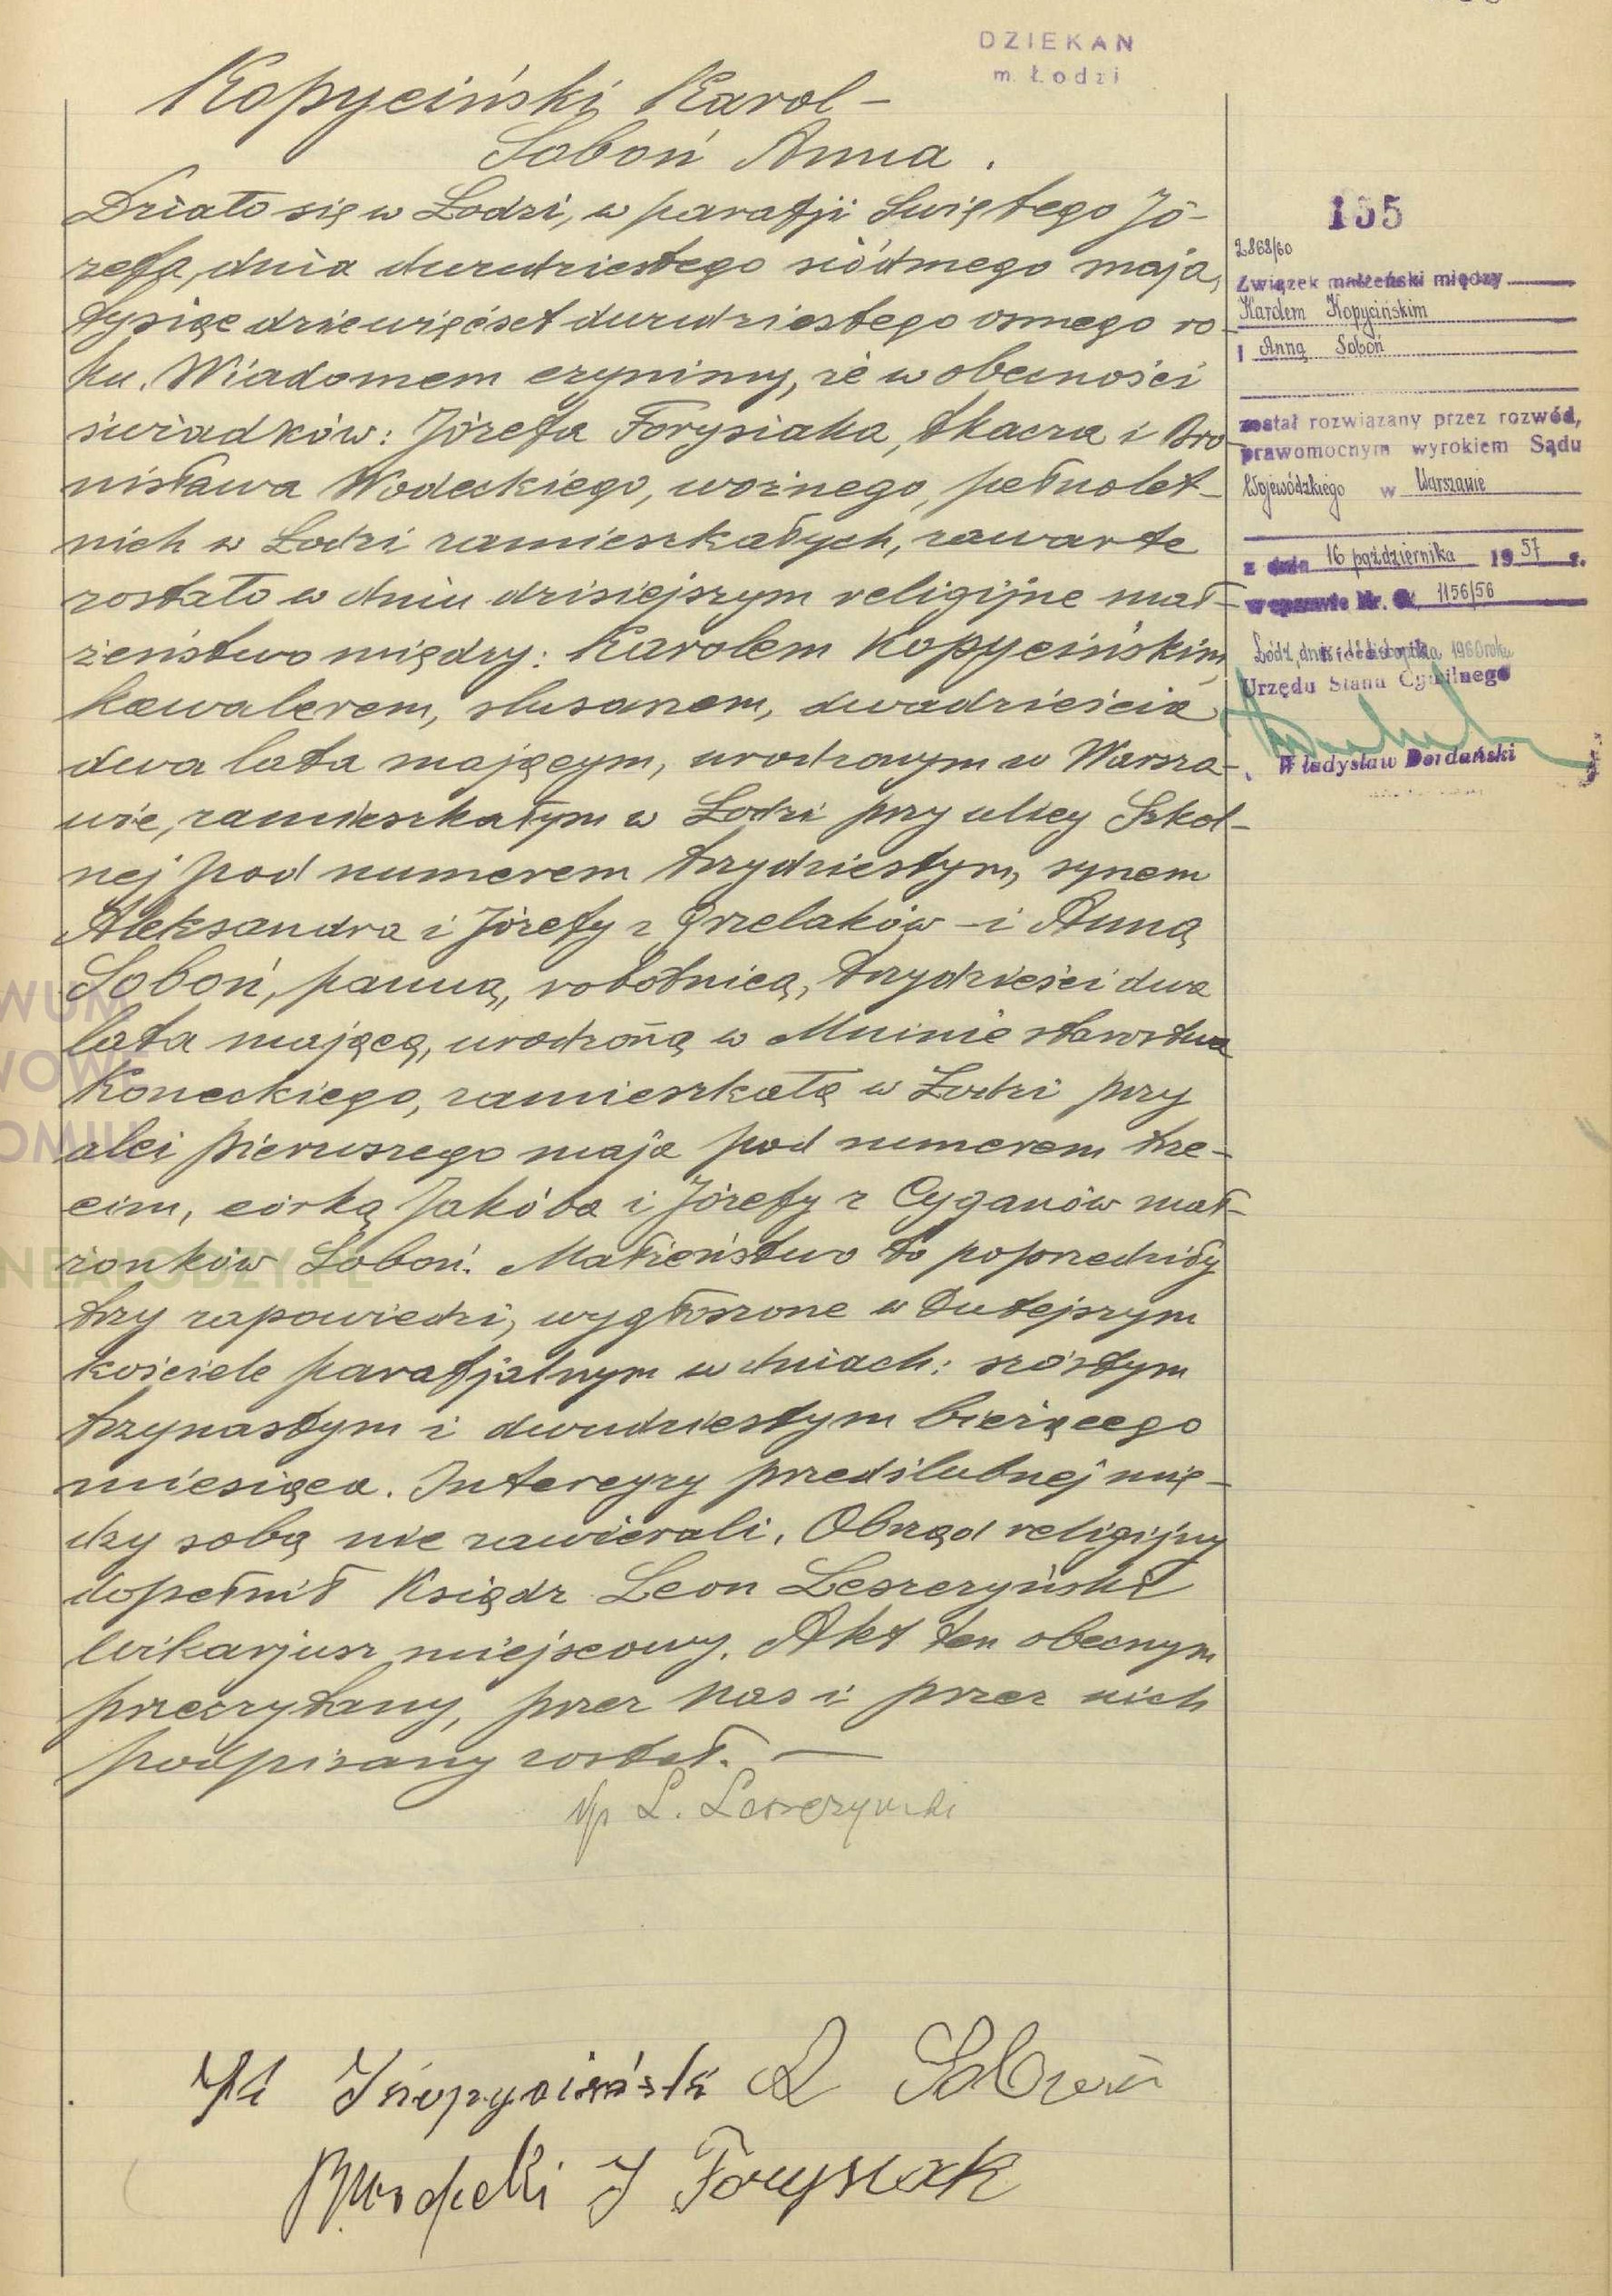 DZIEKAN
m. Łodzi
Kopyciński Karol –
Soboń Anna.
Działo się w Łodzi, w parafji Świętego Jó-
zefa, dnia dwudziestego siódmego maja,
tysiąc dziewięćset dwudziestego osmego ro-
ku. Wiadomem czynimy, że w obecności
świadków: Józefa Forysiaka, tkacza i Bro-
nisława Wodeckiego, woźnego, pełnolet-
nich w Łodzi zamieszkałych, zawarte
zostało w dniu dzisiejszym religijne mał-
żeństwo między: Karolem Kopycińskim,
kawalerem, ślusarzem, dwadzieścia
dwa lata mającym, urodzonym w Warsza-
wie, zamieszkałym w Łodzi przy ulicy Szkol-
nej pod numerem trzydziestym, synem
Aleksandra i Józefy z Grzelaków – i Anną
Soboń, panną, robotnicą, trzydzieści dwa
lata mającą, urodzoną w Mninie starostwa
Koneckiego, zamieszkałą w Łodzi przy
alei pierwszego maja pod numerem trze-
cim, córką Jakóba i Józefy z Cyganów mał-
żonków Soboń. Małżeństwo to poprzedziły
trzy zapowiedzi, wygłoszone w tutejszym
kościele parafjalnym w dniach: szóstym
trzynastym i dwudziestym bieżącego
miesiąca. Intercyzy przedślubnej mię-
dzy sobą nie zawierali. Obrząd religijny
dopełnił Ksiądz Leon Leszczyński
wikarjusz miejscowy. Akt ten obecnym
przeczytany, przez nas i przez nich
podpisany został. —
L. Leszczyński
Kopyciński A Soboń
BWodecki J Forysiak
155
2868/60
Związek małżeński między
Karolem Kopycińskim
i Anną Soboń
został rozwiązany przez rozwód,
prawomocnym wyrokiem Sądu
Wojewódzkiego w Warszawie
z dnia 16 października 1957 r.
w sprawie Nr. 1156/56
Łódź, dnia listopada 1960 roku
Urzędu Stanu Cywilnego
Władysław Dordański